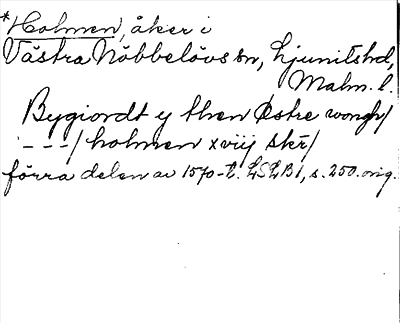 *Holmen, åker i
Västra Nöbbelövs sn, Ljunits hd,
Malm. l.
Bygiordt y then Østre wongh/
- - -/ holmen xviij skr/
förra delen av 1570-t. LSLB1, s. 250. orig.